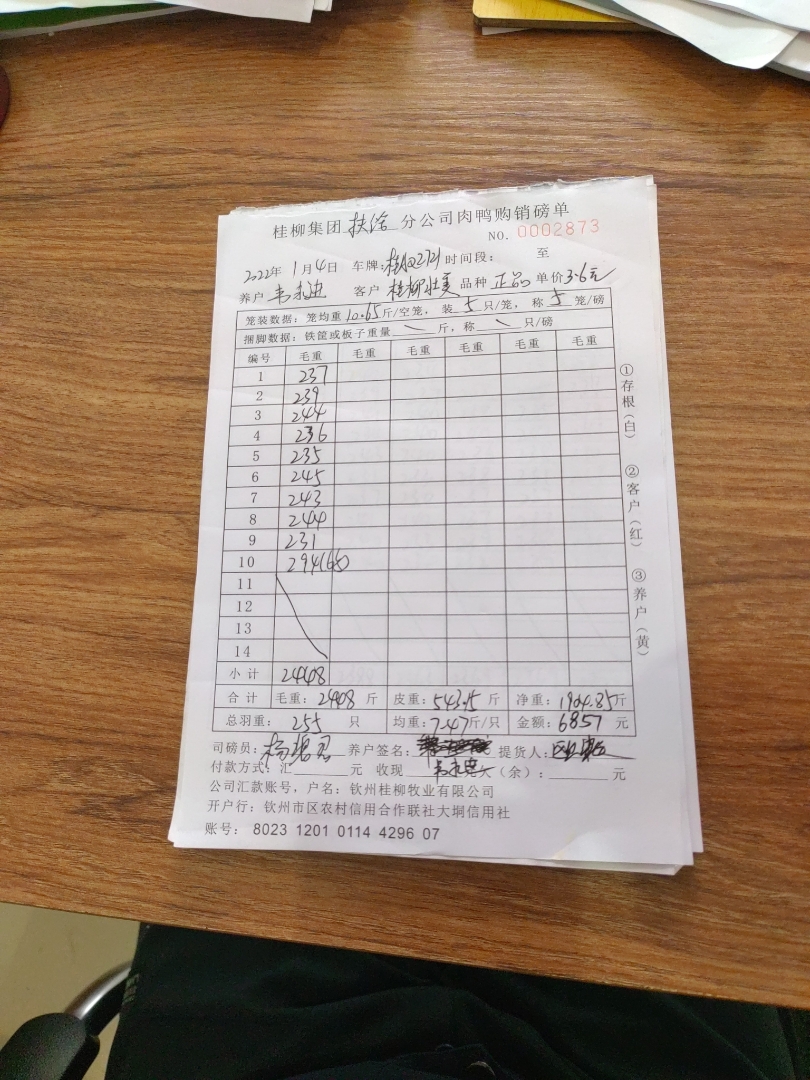 桂柳集团 扶绥 分公司肉鸭购销磅单
NO. 0002873
2022年 1月4日 车牌: 2721 时间段: 至
养户 韦 客户 桂柳壮美 品种 正品 单价3.6元
笼装数据: 笼均重 10.65斤/空笼, 装 5 只/笼, 称 5 笼/磅
捆脚数据: 铁筐或板子重量 \ 斤, 称 \ 只/磅
编号 毛重 毛重 毛重 毛重 毛重 毛重
1 237
2 239
3 244
4 236
5 235
6 245
7 243
8 244
9 231
10 294(6)
11
12
13
14
小计 2448
合计 毛重: 2448 斤 皮重: 543.15 斤 净重: 1904.85斤
总羽重: 255 只 均重: 7.47斤/只 金额: 6857 元
司磅员: 杨 养户签名: 提货人:
付款方式: 汇 元 收现 (余): 元
公司汇款账号, 户名: 钦州桂柳牧业有限公司
开户行: 钦州市区农村信用合作联社大垌信用社
账号: 8023 1201 0114 4296 07
①存根(白)
②客户(红)
③养户(黄)